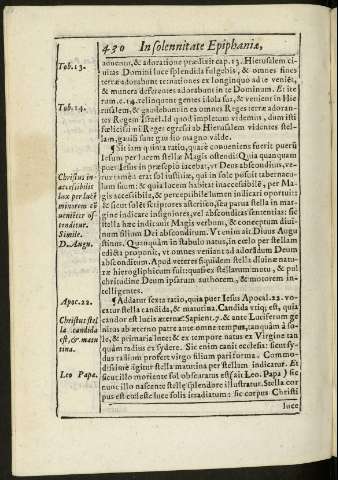 430 In solennitate Epiphaniæ,
Tob.13.
aduentu, & adoratione prædixit cap. 13. Hierusalem ci-
uitas Domini luce splendida fulgebis, & omnes fines
terræ adorabunt te: nationes ex longinquo ad te veniēt,
& munera deferentes adorabunt in te Dominum. Et ite-
Tob.14.
rum c.14. relinquent gentes idola sua, & venient in Hie-
rusalem, & gaudebunt in ea omnes Reges terræ adoran-
tes Regem Israel. Id quod impletum videmus, dum isti
fœlicissimi Reges egressi ab Hierusalem videntes stel-
lam, gauisi sunt gaudio magno valde.
¶ Sit iam quinta ratio, quare conueniens fuerit puerū
Iesum per lucem stellæ Magis ostendi: Quia quanquam
puer Iesus in præsepio iacebat, vt Deus absconditus, ve-
Christus in-
accessibilis
lox per lucē
minorem cō
uenienter os-
tenditur.
Simile.
D. Augu.
rus tamen erat sol iustitiæ, qui in sole posuit tabernacu-
lum suum: & quia lucem habitat inaccessibilē, per Ma-
gis accessibilē, & perceptibile lumen indicari oportuit:
indicare insigniores, vel absconditas sententias: sic
stella hæc indicauit Magis verbum, & conceptum diui-
num filium Dei absconditum. Vt enim ait Diuus Augu
stinus. Quanquam in stabulo natus, in cœlo per stellam
edicta proponit, vt omnes veniant ad adorādum Deum
absconditum. Apud veteres siquidem stella diuinæ natu-
ræ hierogliphicum fuit: quasi ex stellarum motu, & pul
chritudine Deum ipsarum authorem, & motorem in-
telligentes.
Apoc.22.
¶ Addatur sexta ratio, quia puer Iesus Apocal. 22. vo-
catur stella candida, & matutina. Candida vtiq; est, quia
Christus stel
la candida
est, & matu
tina.
candor est lucis æternæ. Sapient. 7. & ante Luciferum ge
nitus ab æterno patre ante omne tempus, tanquàm à so-
le, & primaria luce: & ex tempore natus ex Virgine tan
quàm radius ex sydere. Sic enim canit ecclesia: sicut sy-
dus radium profert virgo filium pari forma. Commo-
dissime igitur stella matutina per stellam indicatur. Et
Leo Papa.
sicut illo moriente sol obscuratus est (ait Leo. Papa) sic
nunc illo nascente stellæ splendore illustratur. Stella cor
pus est cœleste luce solis irradiatum: sic corpus Christi
luce